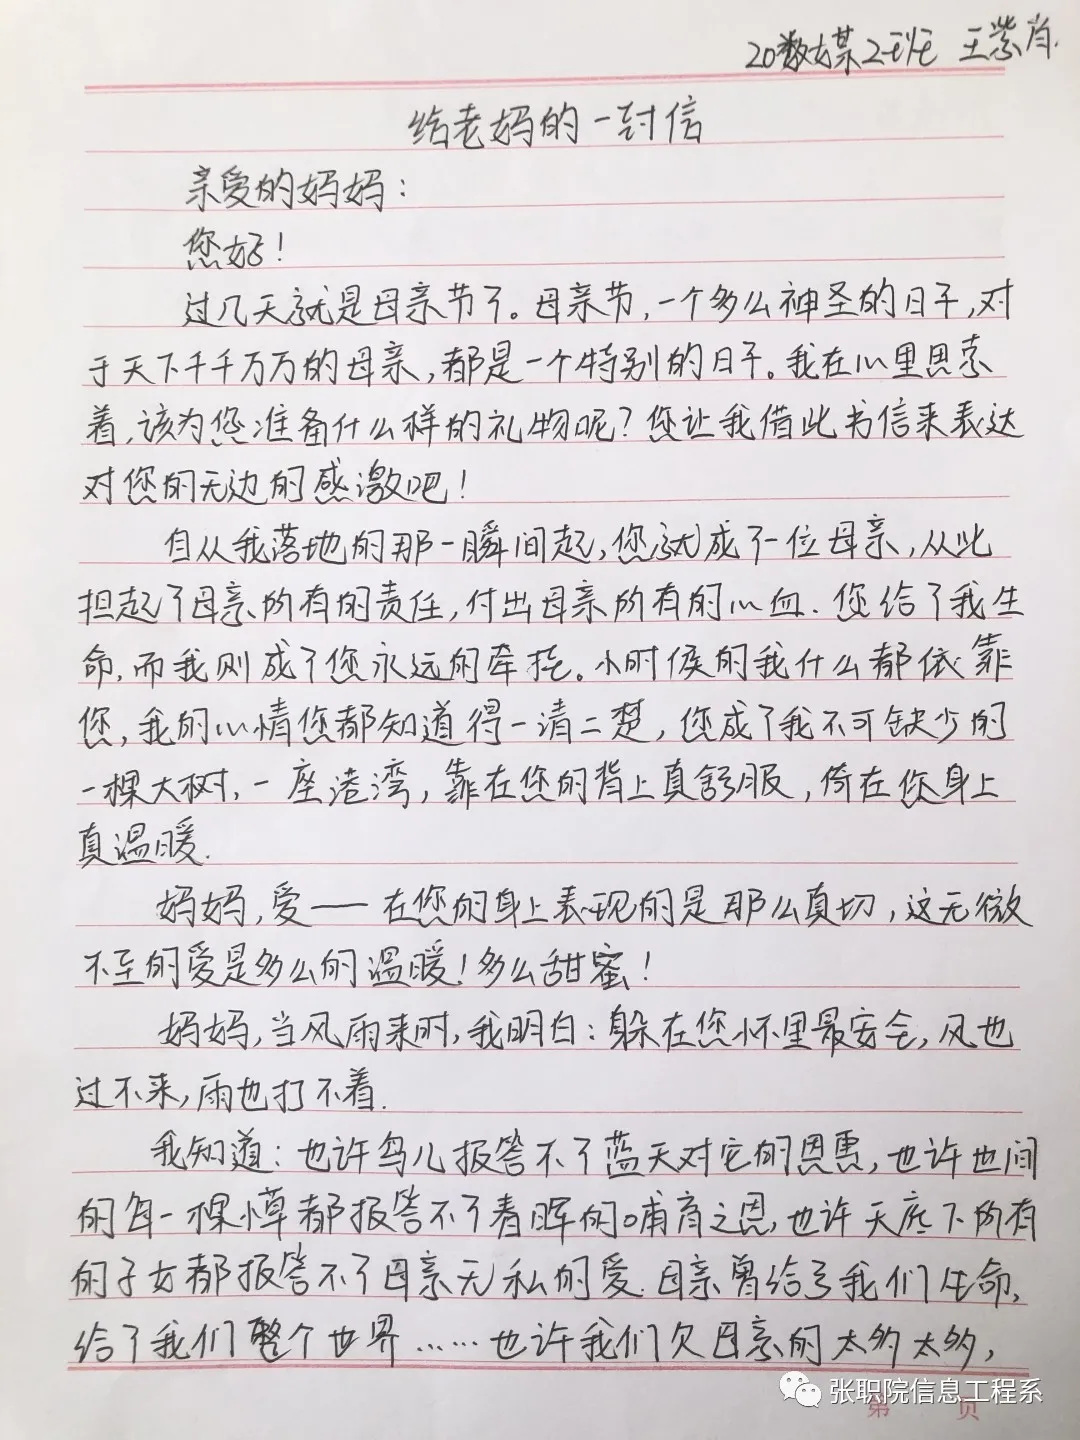 20数媒2班 王紫肖.
给老妈的一封信
亲爱的妈妈：
您好！
过几天就是母亲节了。母亲节，一个多么神圣的日子，对
于天下千千万万的母亲，都是一个特别的日子。我在心里思索
着，该为您准备什么样的礼物呢？您让我借此书信来表达
对您的无边的感激吧！
自从我落地的那一瞬间起，您就成了一位母亲，从此
担起了母亲所有的责任，付出母亲所有的心血.您给了我生
命，而我则成了您永远的牵挂。小时候的我什么都依靠
您，我的心情您都知道得一清二楚，您成了我不可缺少的
一棵大树，一座港湾，靠在您的背上真舒服，倚在您身上
真温暖.
妈妈，爱——在您的身上表现的是那么真切，这无微
不至的爱是多么的温暖！多么甜蜜！
妈妈，当风雨来时，我明白：躲在您怀里最安全，风也
过不来，雨也打不着.
我知道：也许鸟儿报答不了蓝天对它的恩惠，也许世间
的每一棵小草都报答不了春晖的哺育之恩，也许天底下所有
的子女都报答不了母亲无私的爱.母亲曾给了我们生命，
给了我们整个世界……也许我们欠母亲的太多太多，
张职院信息工程系
第 页